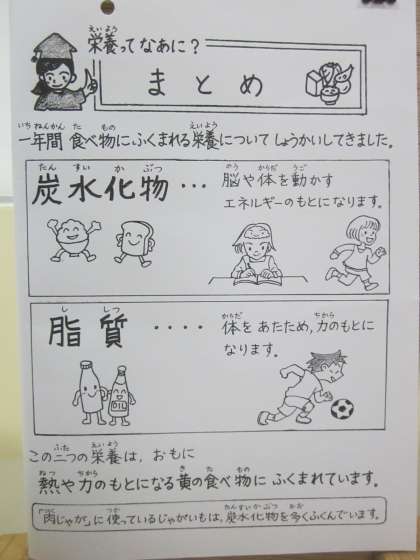 栄養ってなあに？
まとめ
一年間 食べ物にふくまれる栄養について しょうかいしてきました。
炭水化物…
脳や体を動かす
エネルギーのもとになります。
脂質‥‥
体をあたため,力のもとに
なります。
OIL
この二つの栄養は, おもに
熱や力のもとになる黄の食べ物に ふくまれています。
「肉じゃが」に使っているじゃがいもは,炭水化物を多くふくんでいます。